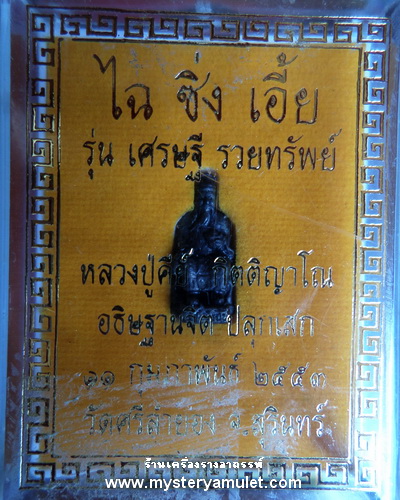 ไฉ ซิ่ง เอี้ย
รุ่น เศรษฐี รวยทรัพย์
หลวงปู่คีย์ กิตติญาโณ
อธิษฐานจิต ปลุกเสก
๑๑ กุมภาพันธ์ ๒๕๕๓
วัดศรีลำยอง จ.สุรินทร์
ร้านเครื่องรางอาถรรพ์
www.mysteryamulet.com